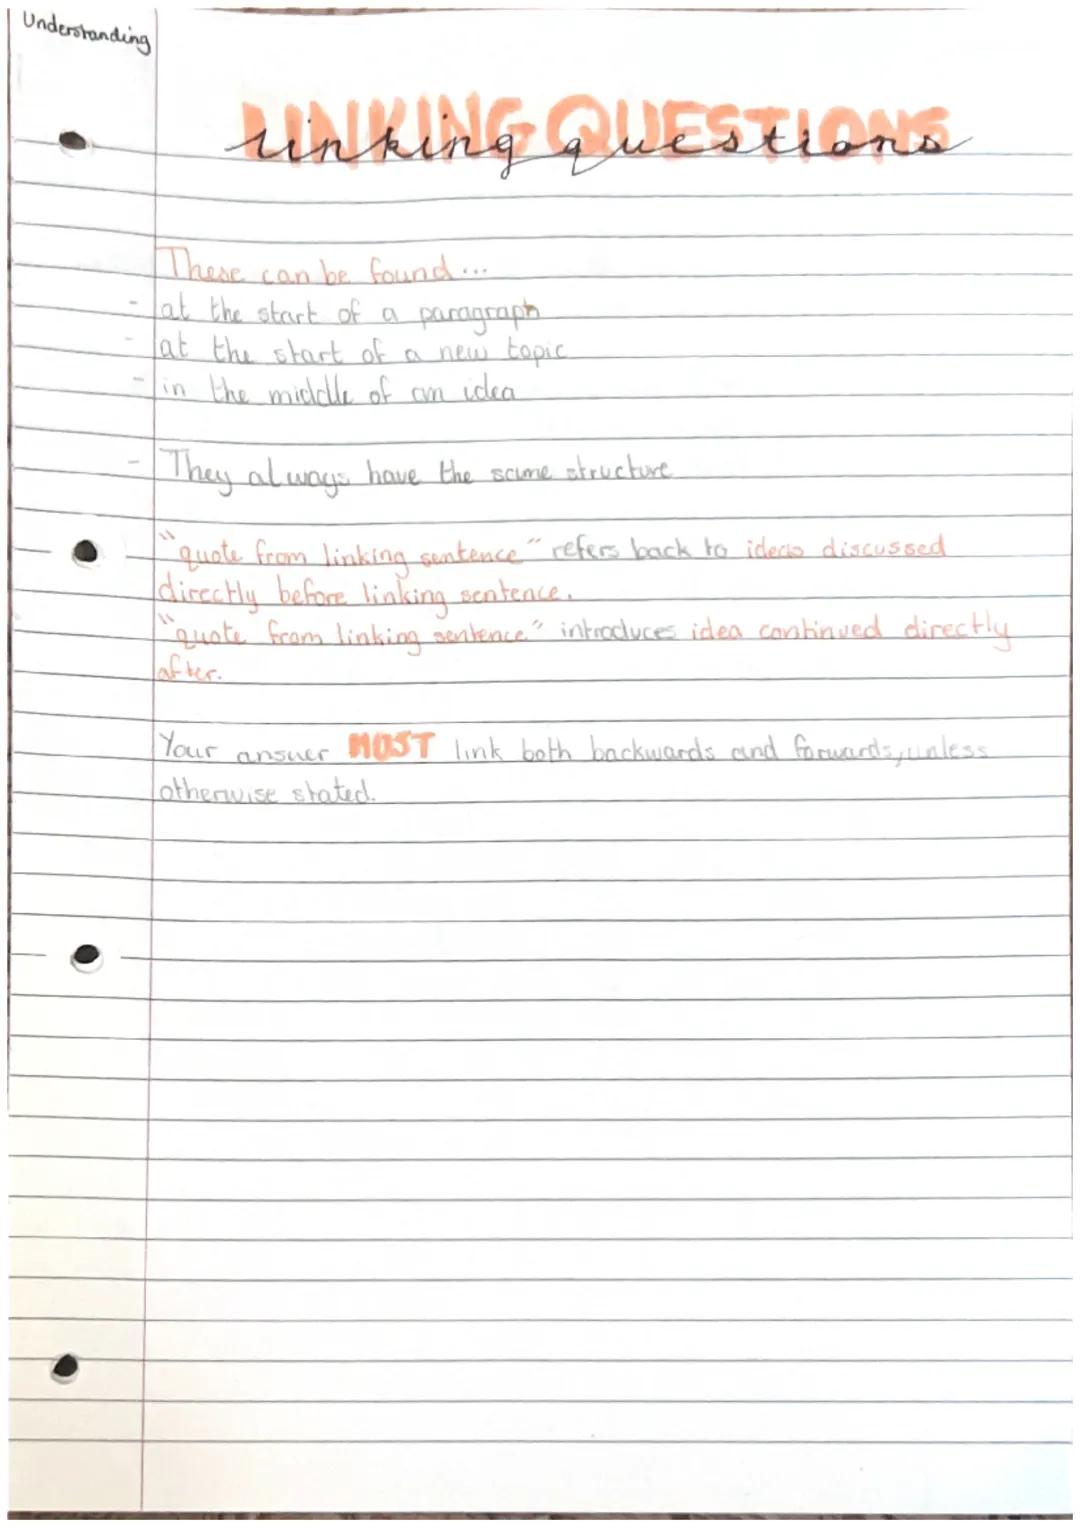 Understanding
LINKING QUESTIONS
linking questions
These can be found...
- at the start of a paragraph
- at the start of a new topic
- in the middle of an idea
- They always have the same structure
"quote from linking sentence" refers back to ideas discussed
directly before linking sentence.
"quote from linking sentence" introduces idea continued directly
after.
Your answer MUST link both backwards and forwards, unless
otherwise stated.